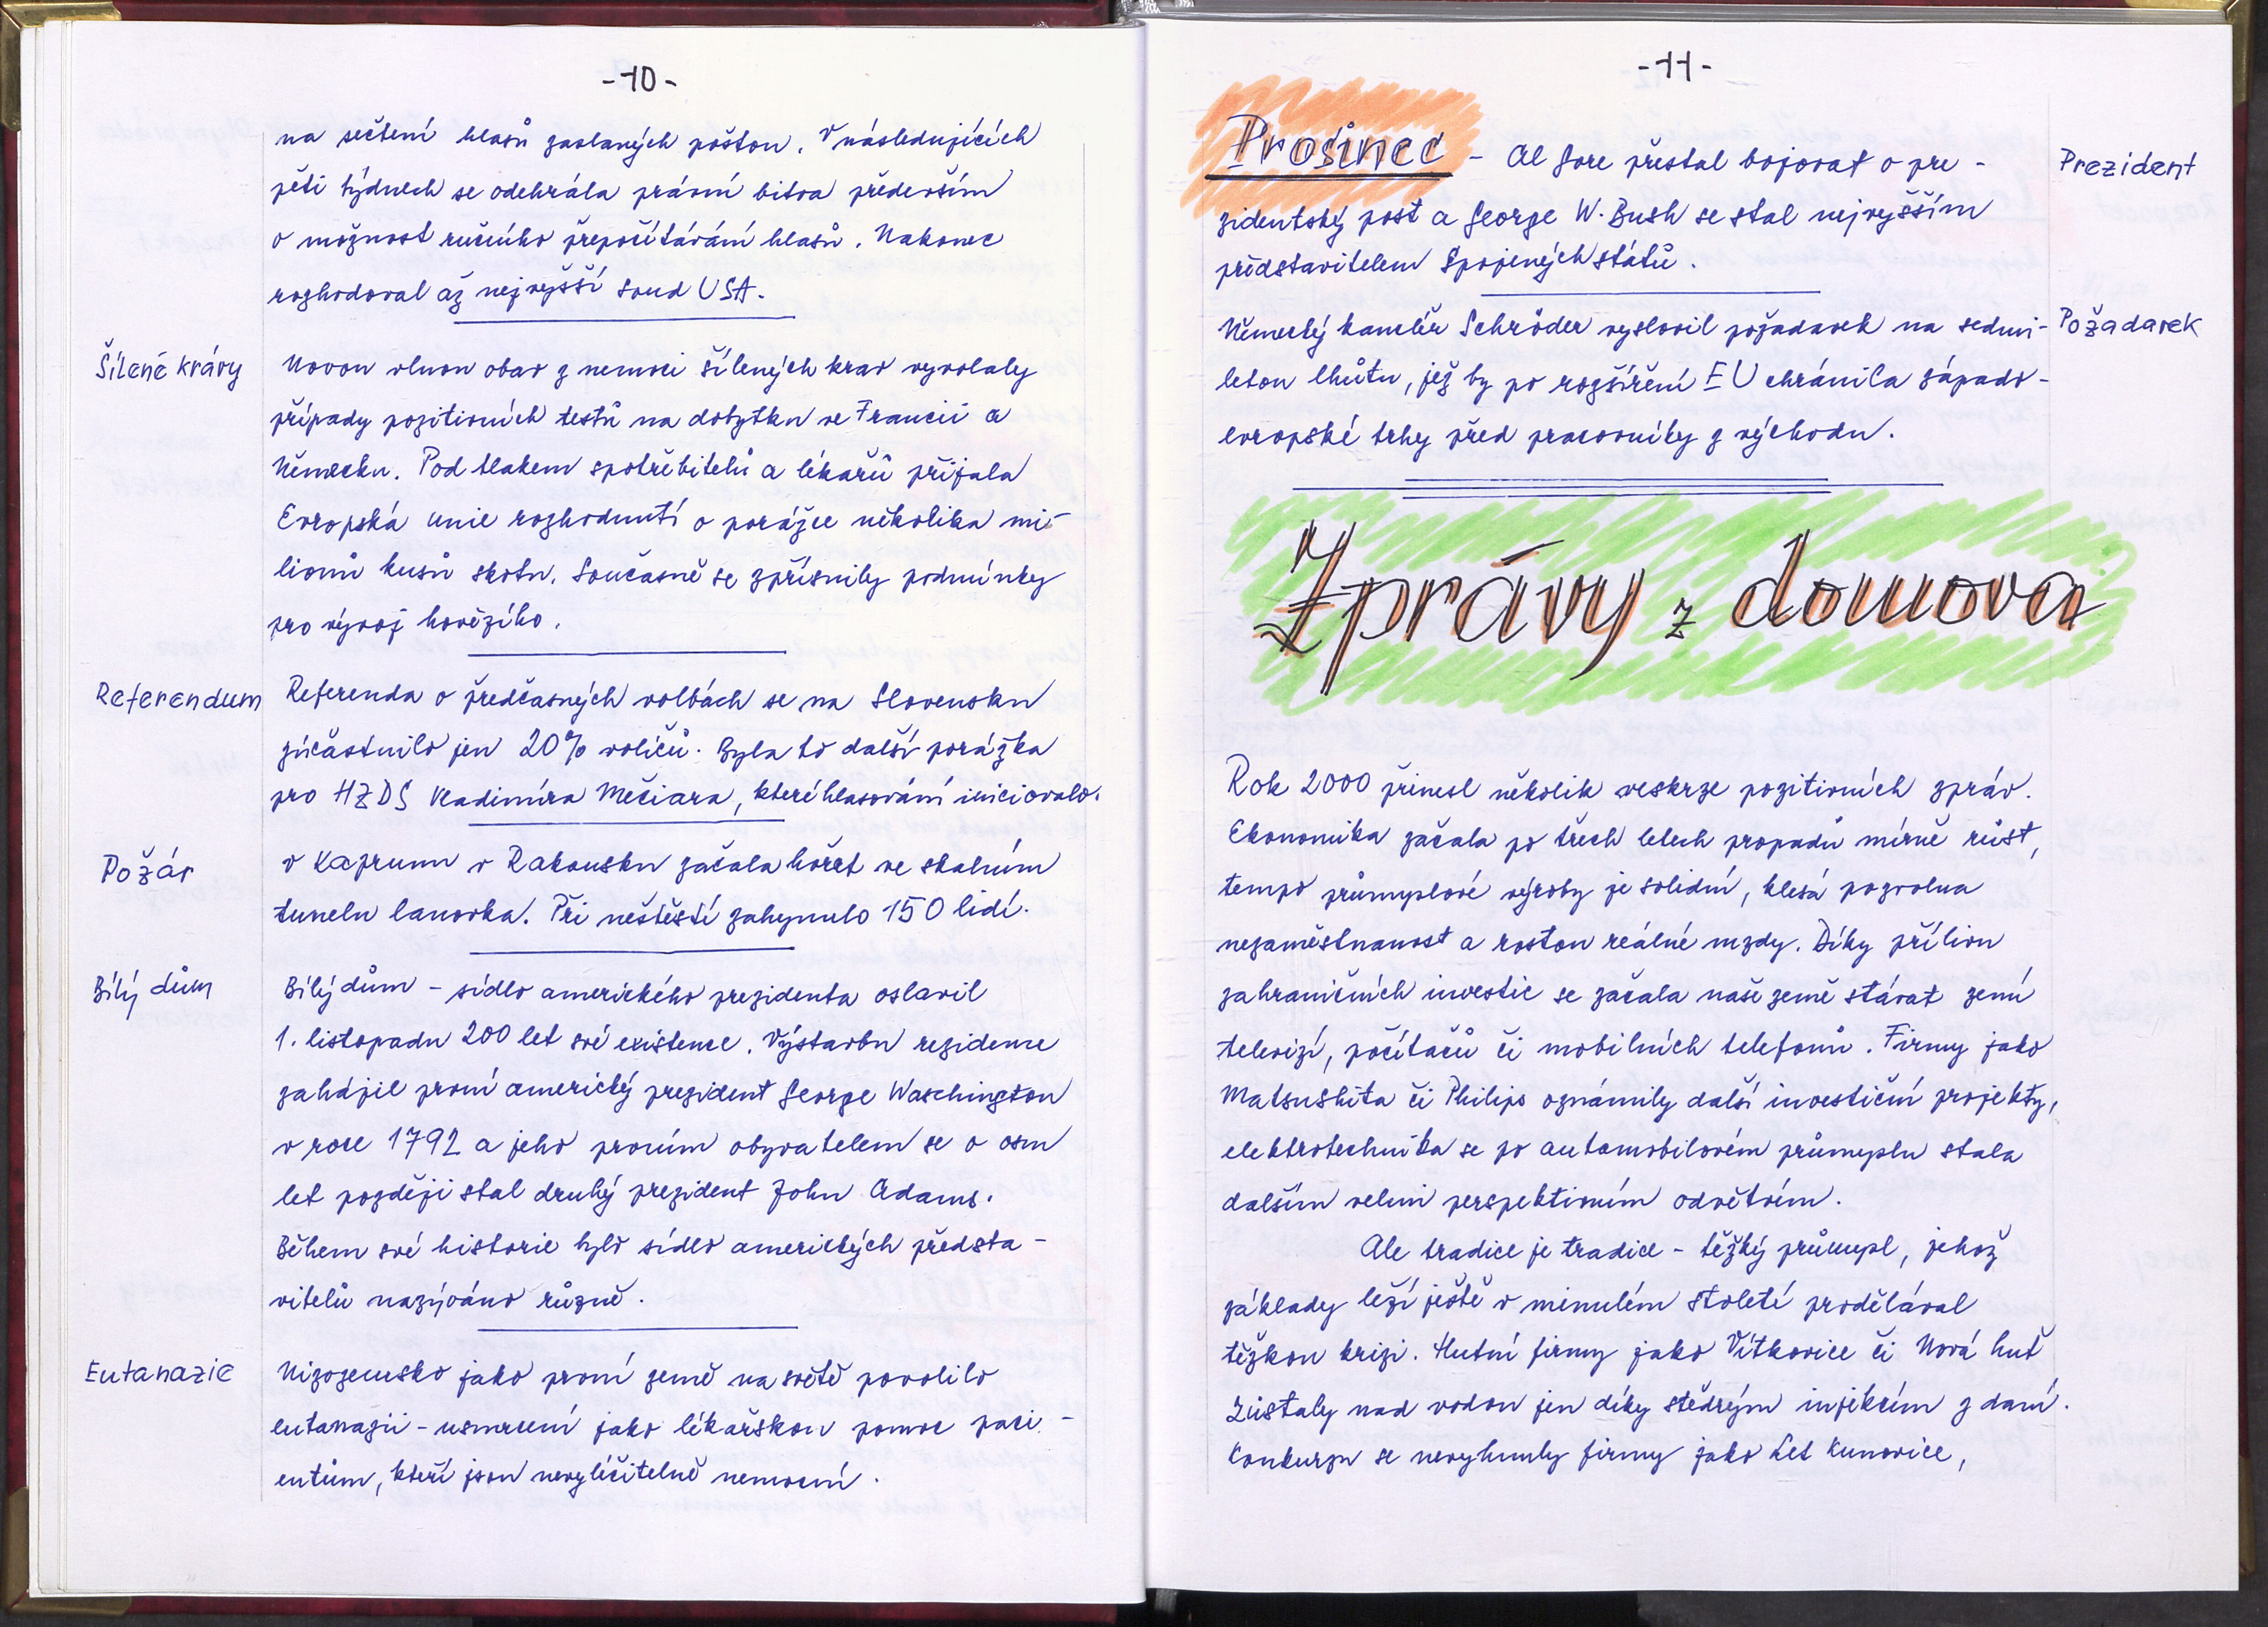 -10-
na sečtení hlasů zaslaných poštou. V následujících
pěti týdnech se odehrála právní bitva především
o možnost ručního přepočítávání hlasů. Nakonec
rozhodoval až nejvyšší soud USA.
Šílené krávy
Novou vlnou obav z nemoci šílených krav vyvolaly
případy pozitivních testů na dobytku ve Francii a
Německu. Pod tlakem spotřebitelů a lékařů přijala
Evropská unie rozhodnutí o porážce několika mi-
lionů kusů skotu. Současně se zpřísnily podmínky
pro vývoz hovězího.
Referendum
Referenda o předčasných volbách se na Slovensku
zúčastnilo jen 20% voličů. Byla to další porážka
pro HZDS Vladimíra Mečiara, které hlasování iniciovalo.
Požár
V Kaprunu v Rakousku začala hořet ve skalním
tunelu lanovka. Při neštěstí zahynulo 150 lidí.
Bílý dům
Bílý dům - sídlo amerického prezidenta oslavil
1. listopadu 200 let své existence. Výstavbu rezidence
zahájil první americký prezident George Waschington
v roce 1792 a jeho prvním obyvatelem se o osm
let později stal druhý prezident John Adams.
Během své historie bylo sídlo amerických předsta-
vitelů nazýváno různě.
Eutanazie
Nizozemsko jako první země na světě povolilo
eutanazii - usmrcení jako lékařskou pomoc paci-
entům, kteří jsou nevyléčitelně nemocní.
-11-
Prosinec - Al Gore přestal bojovat o pre-
Prezident
zidentský post a George W. Bush se stal nejvyšším
představitelem Spojených států.
Německý kancléř Schröder vyslovil požadavek na sedmi-
Požadavek
letou lhůtu, jež by po rozšíření EU chránila západo-
evropské trhy před pracovníky z východu.
Zprávy z domova
Rok 2000 přinesl několik veskrze pozitivních zpráv.
Ekonomika začala po třech letech propadů mírně růst,
tempo průmyslové výroby je solidní, klesá pozvolna
nezaměstnanost a rostou reálné mzdy. Díky přílivu
zahraničních investic se začala naše země stávat zemí
televizí, počítačů či mobilních telefonů. Firmy jako
Matsushita či Philips oznámily další investiční projekty,
elektrotechnika se po automobilovém průmyslu stala
dalším velmi perspektivním odvětvím.
Ale tradice je tradice - těžký průmysl, jehož
základy leží ještě v minulém století prodělával
těžkou krizi. Hutní firmy jako Vítkovice či Nová huť
zůstaly nad vodou jen díky štědrým injekcím z daní.
Konkurzu se nevyhnuly firmy jako Let Kunovice,